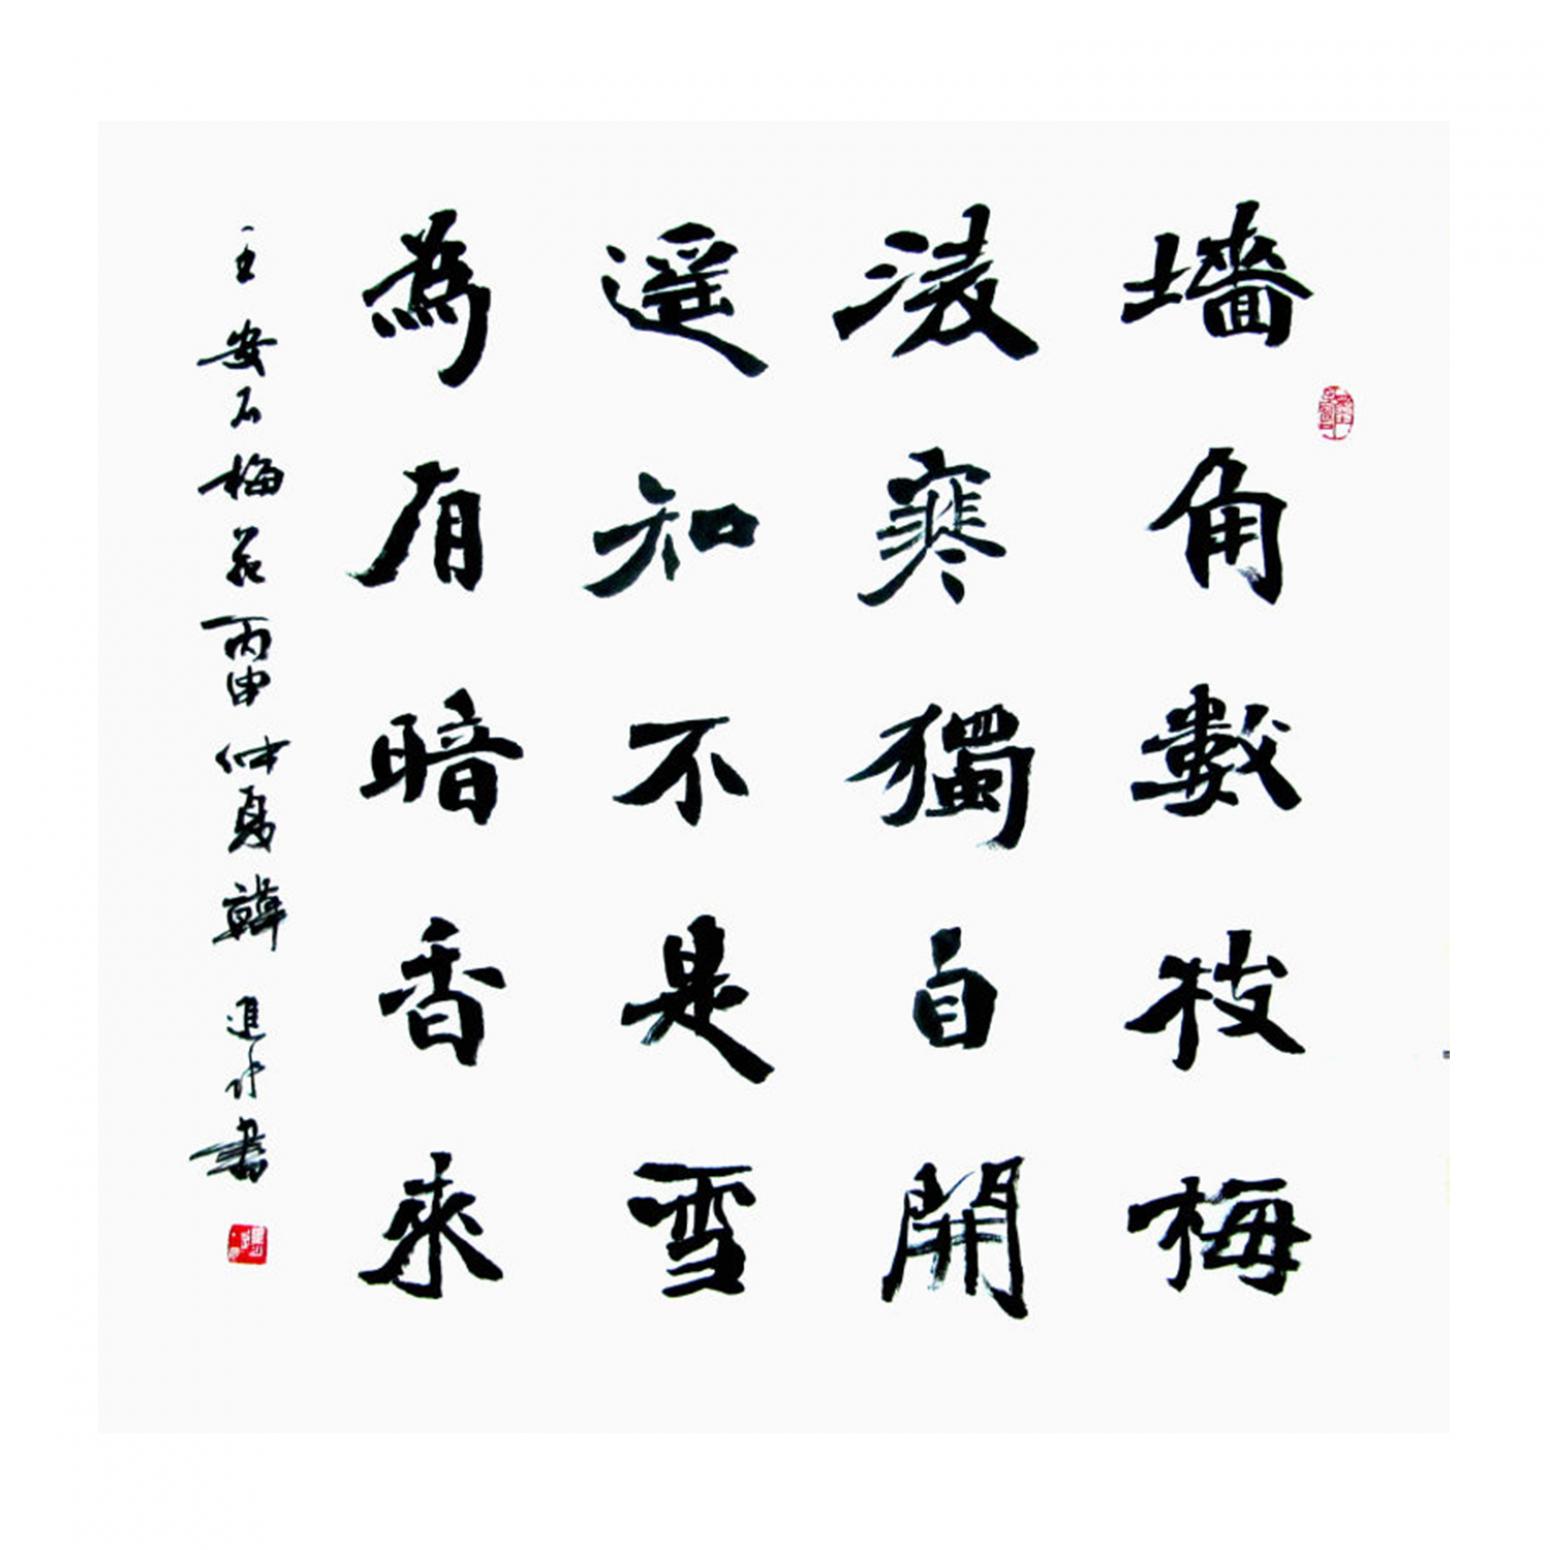 墻角數枝梅
淩寒獨自開
遥知不是雪
為有暗香來
王安石梅花丙申仲夏韓進書